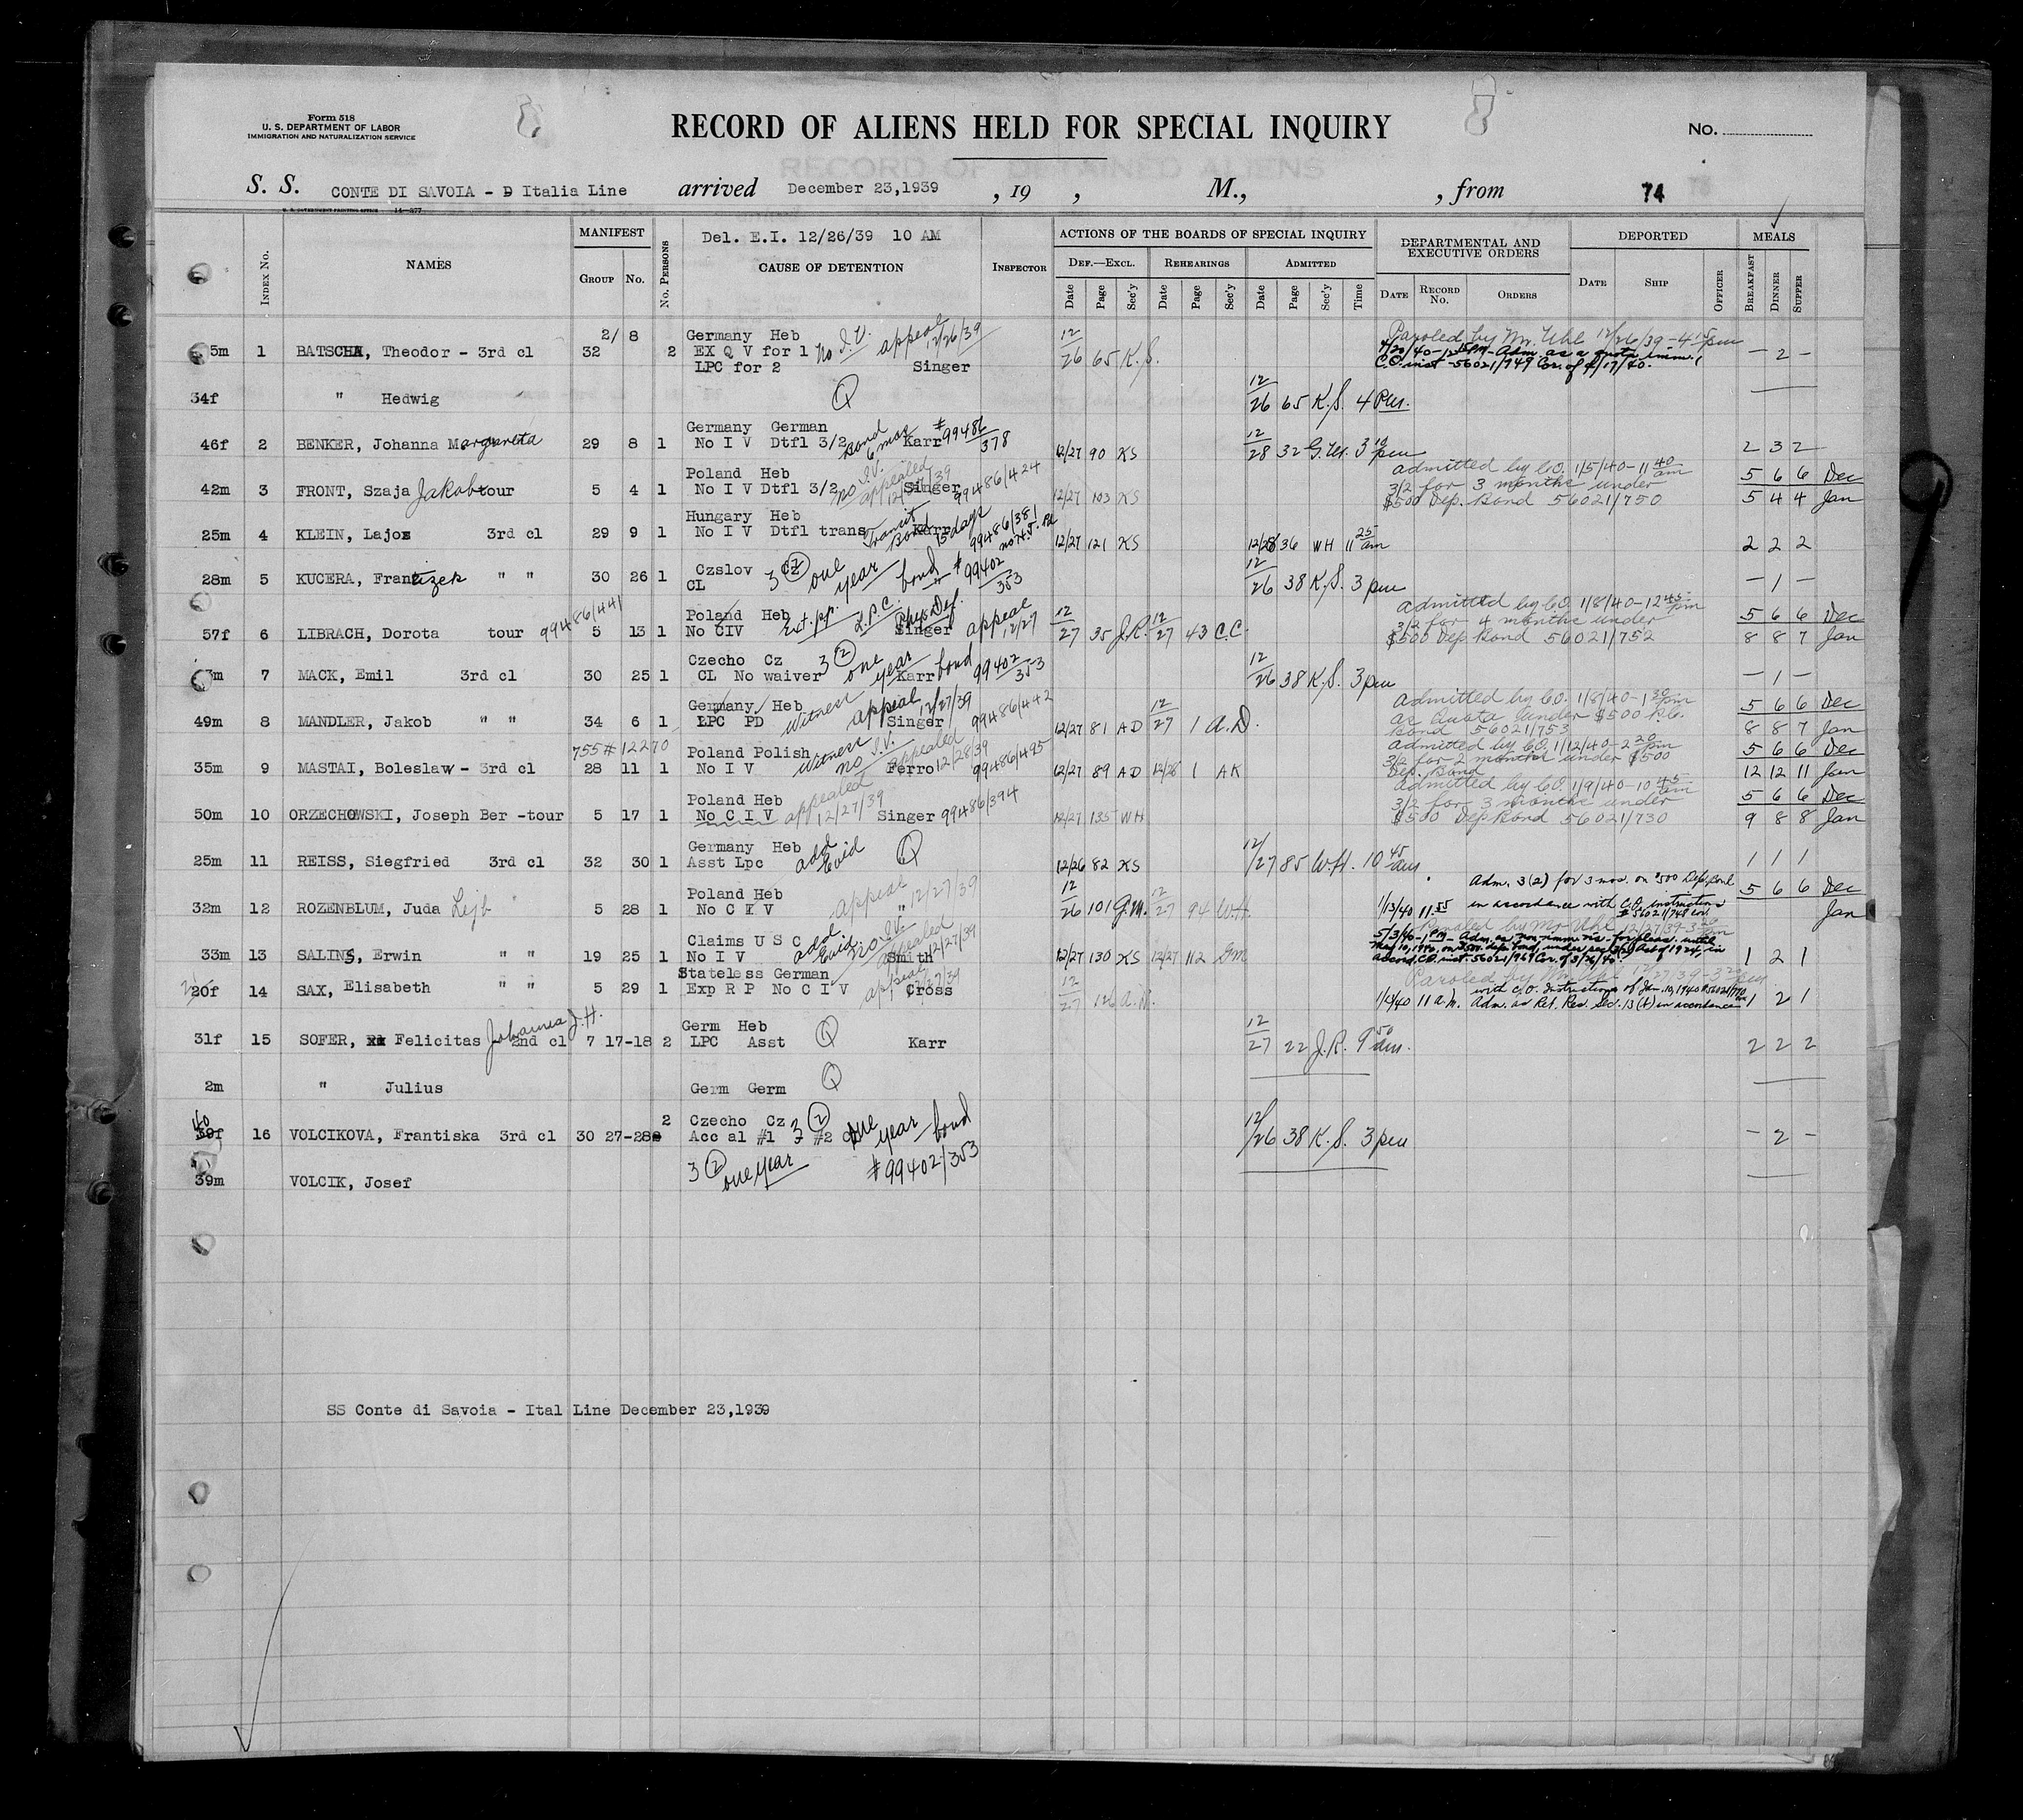 Form 518
U. S. DEPARTMENT OF LABOR
IMMIGRATION AND NATURALIZATION SERVICE
RECORD OF ALIENS HELD FOR SPECIAL INQUIRY
No.
RECORD OF DETAINED ALIENS
S. S. CONTE DI SAVOIA - D Italia Line arrived December 23,1939 , 19 , M., , from 74
U. S. GOVERNMENT PRINTING OFFICE 14-377
Index No. NAMES MANIFEST Group No. No. Persons
Del. E.I. 12/26/39 10 AM
CAUSE OF DETENTION Inspector
ACTIONS OF THE BOARDS OF SPECIAL INQUIRY
Def.—Excl. Rehearings Admitted
Date Page Sec'y Date Page Sec'y Date Page Sec'y Time
DEPARTMENTAL AND EXECUTIVE ORDERS
Date Record No. Orders
DEPORTED
Date Ship Officer
MEALS
Breakfast Dinner Supper
5m 1 BATSCHA, Theodor - 3rd cl 32 2/ 8 2 Germany Heb
EX Q V for 1 No I.V. appeal 12/26/39
LPC for 2 Singer
12/26 65 K.S.
Paroled by Mr. Uhl 12/26/39-4 15 pm
4/20/40-12 15 PM-Adm. as a quota imm.
C.O. inst-56021/749 Cor. of 4/17/40.
- 2 -
34f " Hedwig Q 12/26 65 K.S. 4 Pm.
46f 2 BENKER, Johanna Margareta 29 8 1 Germany German
No I V Dtfl 3/2 Bond 6 mos Karr #99486/378
12/27 90 KS 12/28 32 G.W. 3 10 pm 2 3 2
42m 3 FRONT, Szaja Jakob tour 5 4 1 Poland Heb
No I V Dtfl 3/2 no I.V. appealed 12/27/39 Singer 99486/424
12/27 103 KS
admitted by CO. 1/5/40-11 40 am
3/2 for 3 months under
$500 Dep. Bond 56021/750
5 6 6 Dec
5 4 4 Jan
25m 4 KLEIN, Lajos 3rd cl 29 9 1 Hungary Heb
No I V Dtfl trans Transit Bond 15 days Karr 99486/381
12/27 121 KS 12/28 36 WH 11 25 am 2 2 2
28m 5 KUCERA, Frantizek " " 30 26 1 Czslov Cz
CL 3(2) one year bond #99402/353
12/26 38 K.S. 3 pm - 1 -
57f 6 LIBRACH, Dorota tour 99486/441 5 13 1 Poland Heb
No CIV L.P.C. Phys Def. Singer appeal 12/27
12/27 35 J.R. 12/27 43 C.C.
Admitted by CO. 1/8/40-12 45 pm
3/2 for 4 months under
$500 Dep Bond 56021/752
5 6 6 Dec
8 8 7 Jan
m 7 MACK, Emil 3rd cl 30 25 1 Czecho Cz
CL No waiver 3(2) one year bond Karr 99402/353
12/26 38 K.S. 3 pm - 1 -
49m 8 MANDLER, Jakob " " 34 6 1 Germany Heb
LPC PD Witness appeal 12/27/39 Singer 99486/442
12/27 81 AD 12/27 1 A.D.
Admitted by CO. 1/8/40-1 30 pm
as Quota under $500 P.C.
Bond 56021/753
5 6 6 Dec
8 8 7 Jan
755#12270
35m 9 MASTAI, Boleslaw - 3rd cl 28 11 1 Poland Polish
No I V Witness no I.V. appealed 12/28/39 Ferro 99486/495
12/27 89 AD 12/28 1 AK
admitted by CO. 1/12/40-2 20 pm
3/2 for 2 months under $500
Dep. Bond
5 6 6 Dec
12 12 11 Jan
50m 10 ORZECHOWSKI, Joseph Ber -tour 5 17 1 Poland Heb
No C I V appealed 12/27/39 Singer 99486/394
12/27 135 WH
admitted by CO. 1/9/40-10 45 am
3/2 for 3 months under
$500 Dep Bond 56021/730
5 6 6 Dec
9 8 8 Jan
25m 11 REISS, Siegfried 3rd cl 32 30 1 Germany Heb
Asst Lpc add Evid Q
12/26 82 KS 12/27 85 W.H. 10 45 am 1 1 1
32m 12 ROZENBLUM, Juda Lejb " 5 28 1 Poland Heb
No C I V appeal 12/27/39 "
12/26 101 G.M. 12/27 94 W.H.
Adm. 3(2) for 3 mos. on $500 Dep. Bond
1/13/40 11.55 in accordance with C.O. instructions
#56021/748 cor.
5 6 6 Dec
Jan
33m 13 SALINS, Erwin " " 19 25 1 Claims U S C
No I V add Evid no I.V. appealed 12/27/39 Smith
12/27 130 KS 12/27 112 GM
Paroled by Mr Uhl 12/27/39-3 20 pm
5/3/40-1 PM- Adm. as non-imm. vis- for pleas. until
accord. C.O. inst. 56021/969 Cor. of 3/26/40.
1 2 1
20f 14 SAX, Elisabeth " " 5 29 1 Stateless German
Exp R P No C I V appeal 12/27/39 Cross
12/27 126 A.K.
Paroled by Mr Uhl 12/27/39-3 20 pm
with C.O. Instructions of Jan. 10, 1940
1/15/40 11 a.m. Adm. as Ret. Res. Sec. 13 (b) in accordance
1 2 1
31f 15 SOFER, Felicitas Johanna J.H. 2nd cl 7 17-18 2 Germ Heb
LPC Asst Q Karr
12/27 22 J.R. 9 50 am. 2 2 2
2m " Julius Germ Germ Q
40 39f 16 VOLCIKOVA, Frantiska 3rd cl 30 27-28 2 Czecho Cz 3(2) one year bond
Acc al #1 #2
12/26 38 K.S. 3 pm - 2 -
39m VOLCIK, Josef 3(2) one year #99402/353
SS Conte di Savoia - Ital Line December 23,1939